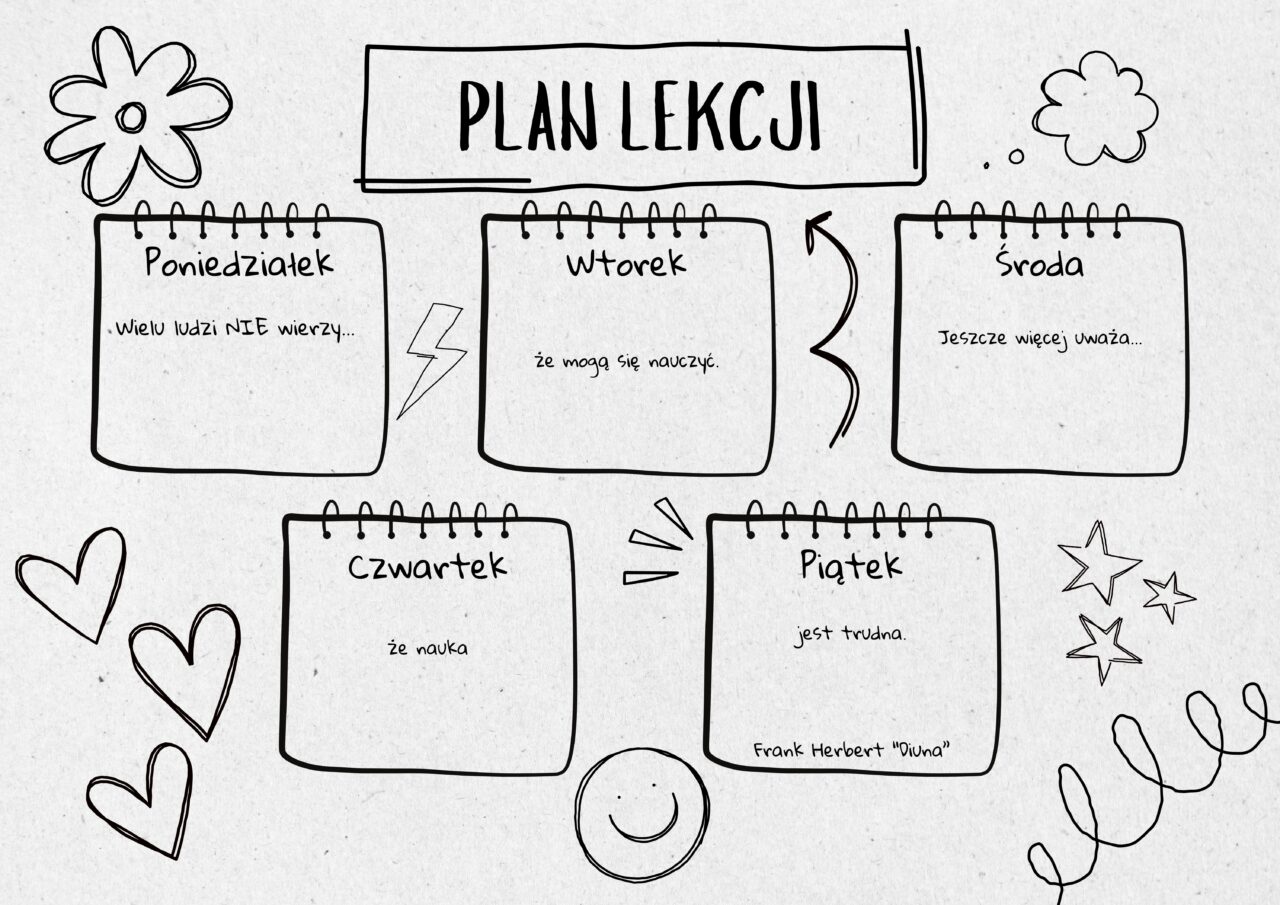 PLAN LEKCJI
Poniedziałek
Wielu ludzi NIE wierzy...
Wtorek
że mogą się nauczyć.
Środa
Jeszcze więcej uważa...
Czwartek
że nauka
Piątek
jest trudna.
Frank Herbert "Diuna"